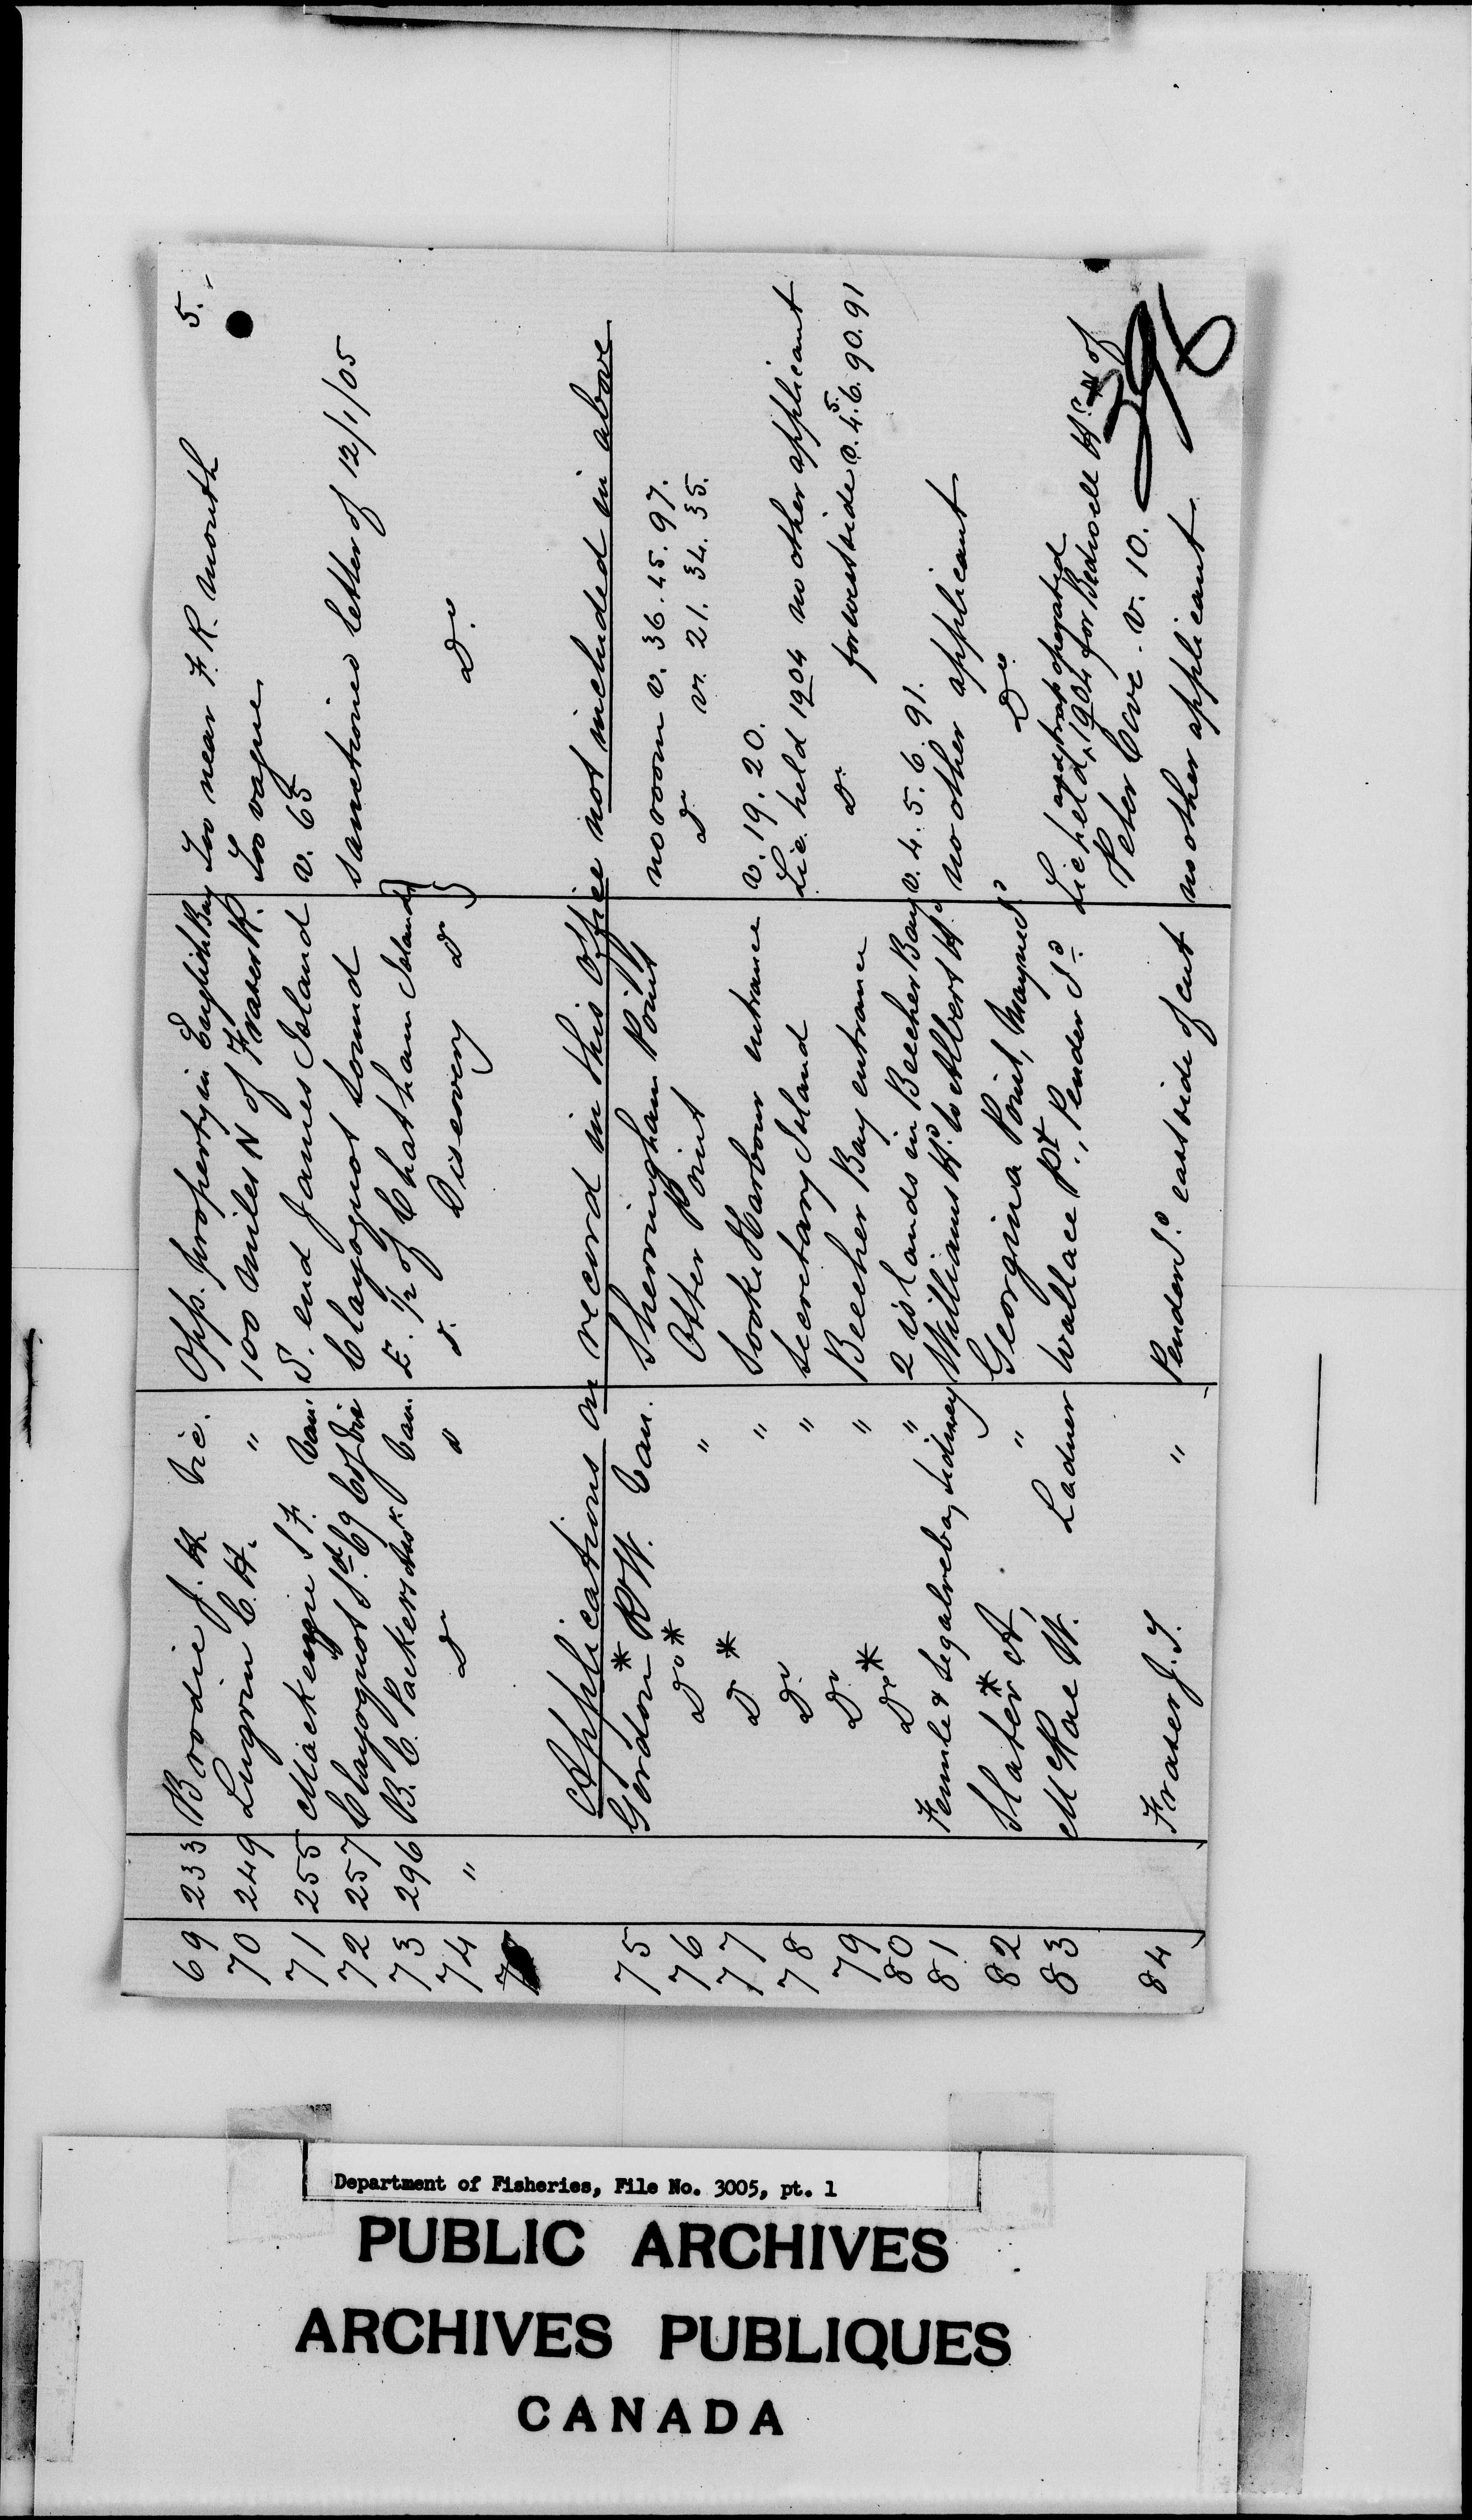 5.
69 233 Brodie J. H Vic. Opp. property in English Bay Too near F. R. mouth
70 249 Lugrin C. H. " 100 miles N of Fraser R. Too vague
71 255 Mackenzie S F. Van. S. end James Island v. 65
72 257 Clayoquot Sd Cg Co Vic Clayoquot Sound sanctioned letter of 12/1/05
73 296 B. C. Packers Assn Van. E. 1/2 of Chatham Island }
74 " Do " d. Discovery Do } Do
Applications on record in this office not included in above
75 Gordon * R W. Van. Sherringham Point no room v. 36. 45. 97.
76 Do * " Otter Point Do v. 21. 34. 35.
77 Do * " Sooke Harbour entrance v. 19. 20.
78 Do " Secretary Island Lic. held 1904 no other applicant
79 Do " Beecher Bay entrance Do for west side v. 4. 5. 6. 90. 91
80 Do * " 2 islands in Beecher Bay v. 4. 5. 6. 91.
81 & Sidney William Hd to Albert Hd no other applicant
82 Slater * A. " Georgina Point, Mayne Id Do
83 McRae W. Ladner Wallace Pt, Pender Id Lic held & trap operated 1904 for Bedwell Hr of
Peter Cove. v. 10.
84 Fraser J. S. " Pender Id east side of cut no other applicant
396
Department of Fisheries, File No. 3005, pt. 1
PUBLIC ARCHIVES
ARCHIVES PUBLIQUES
CANADA